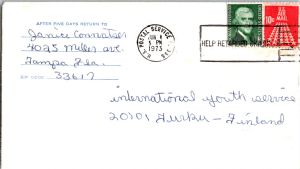 AFTER FIVE DAYS RETURN TO
Janice Connatser
4025 Miles ave.
Tampa Fla.
ZIP CODE 33617
U.S. POSTAL SERVICE
PM
1973
HELP RETARDED
AIR MAIL
10c
international youth service
20101 Turku - Finland